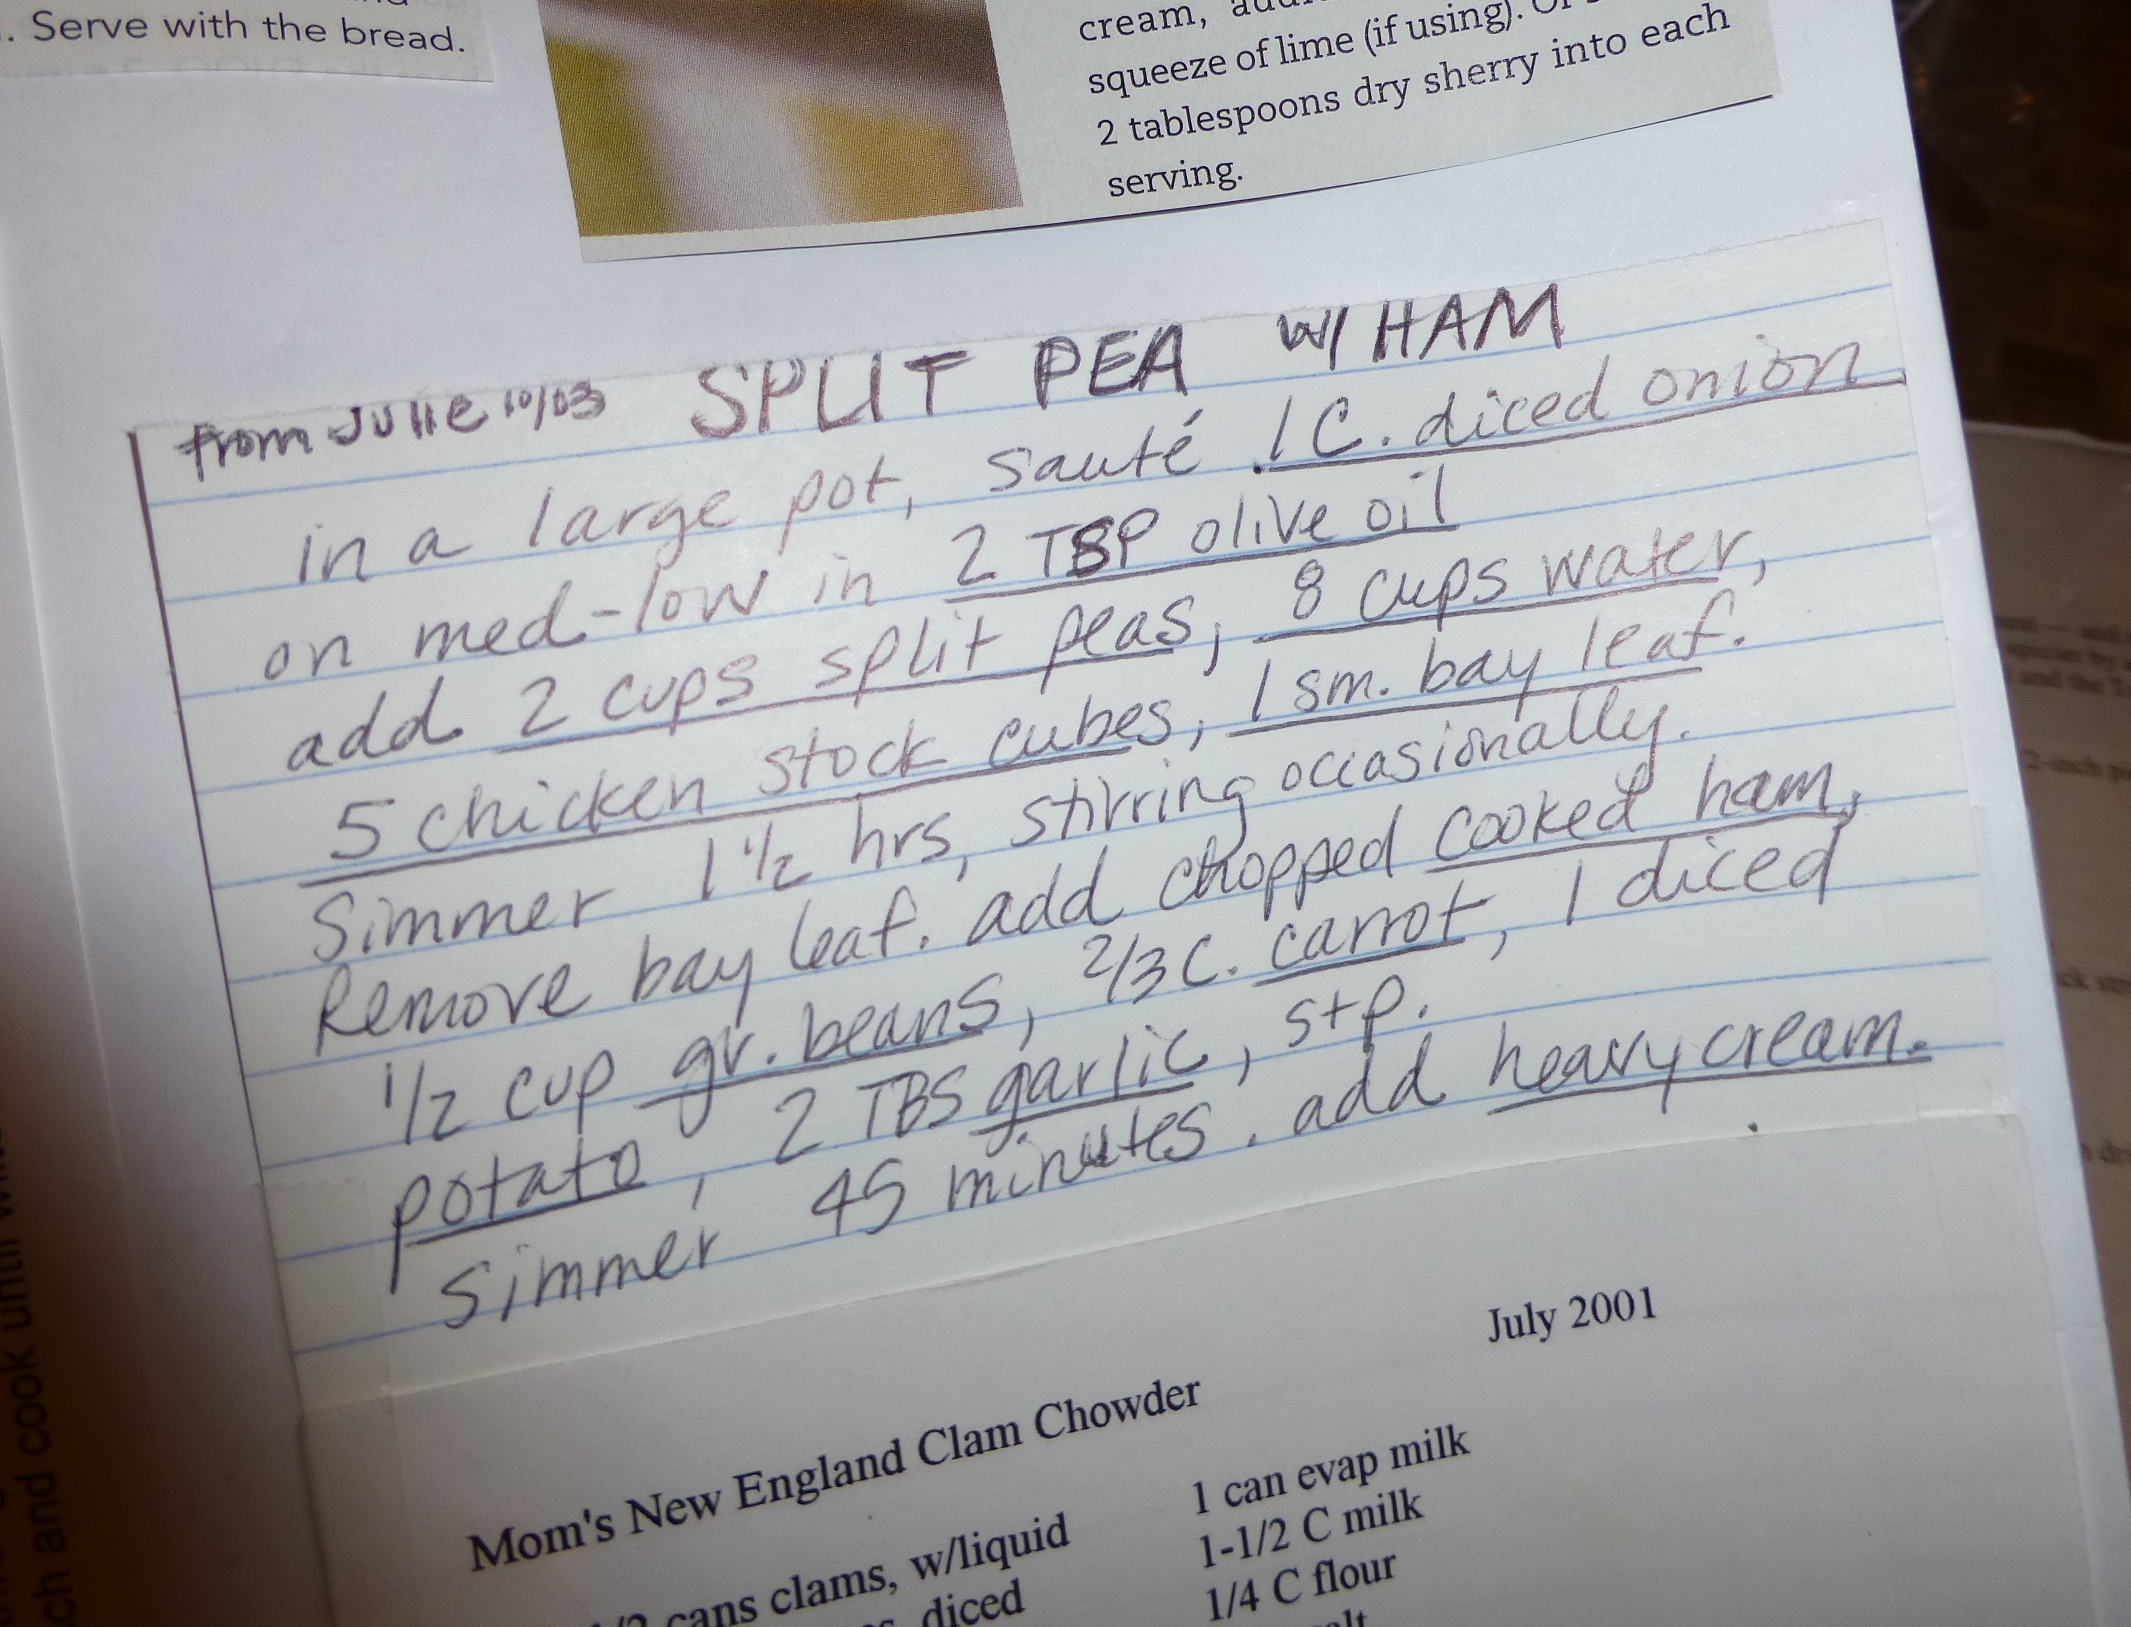 . Serve with the bread.
cream,
squeeze of lime (if using).
2 tablespoons dry sherry into each
serving.
from JULIE 10/03 SPLIT PEA W/ HAM
in a large pot, sauté 1 C. diced onion
on med-low in 2 TBP olive oil
add 2 cups split peas, 8 cups water,
5 chicken stock cubes, 1 sm. bay leaf.
Simmer 1 1/2 hrs, stirring occasionally.
Remove bay leaf. add chopped cooked ham,
1/2 cup gr. beans, 2/3 C. carrot, 1 diced
potato, 2 TBS garlic, s+p.
Simmer 45 minutes. add heavy cream.
July 2001
Mom's New England Clam Chowder
cans clams, w/liquid
diced
1 can evap milk
1-1/2 C milk
1/4 C flour
ch and cook until
and the
2-inch